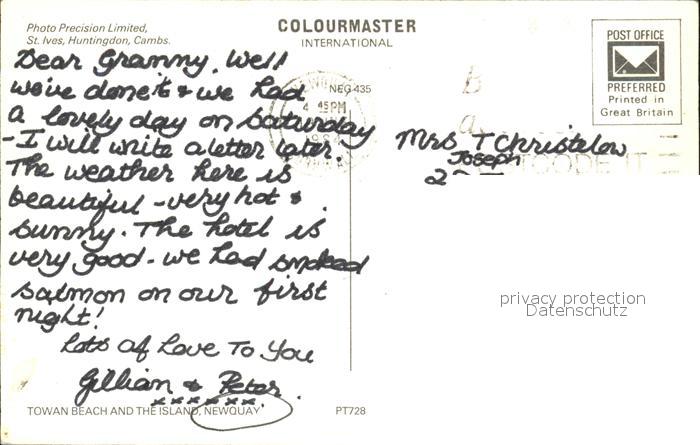 Photo Precision Limited,
St. Ives, Huntingdon, Cambs.
COLOURMASTER
INTERNATIONAL
POST OFFICE
PREFERRED
Printed in
Great Britain
NEG 435
45PM
B
a
POSTCODE IT
Dear Granny, Well
we've done it & we had
a lovely day on Saturday
- I will write a letter later.
The weather here is
beautiful - very hot &
sunny. The hotel is
very good - we had smoked
salmon on our first
night!
Lots of Love To You
Gillian & Peter.
xxxxxx
Mrs T Christelow
Joseph
2
privacy protection
Datenschutz
TOWAN BEACH AND THE ISLAND, NEWQUAY
PT728